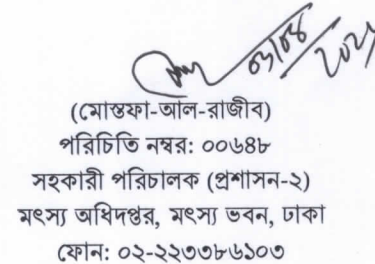 (মোস্তফা-আল-রাজীব)
পরিচিতি নম্বর: ০০৬৪৮
সহকারী পরিচালক (প্রশাসন-২)
মৎস্য অধিদপ্তর, মৎস্য ভবন, ঢাকা
ফোন: ০২-২২৩৩৮৬১০৩